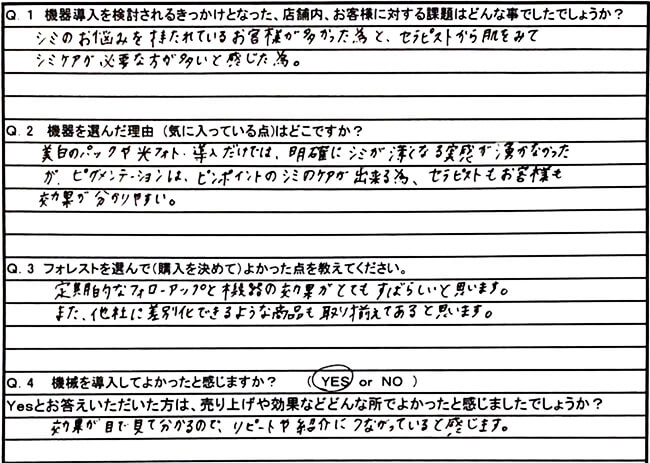 Q. 1 機器導入を検討されるきっかけとなった、店舗内、お客様に対する課題はどんな事でしたでしょうか？
シミのお悩みを持たれているお客様が多かった為と、セラピストから肌をみて
シミケアが必要な方が多いと感じた為。
Q. 2 機器を選んだ理由（気に入っている点）はどこですか？
美白のパックや光フォト・導入だけでは、明確にシミが薄くなる実感が湧かなかった
が、ピグメンテーションは、ピンポイントのシミのケアが出来る為、セラピストもお客様も
効果が分かりやすい。
Q. 3 フォレストを選んで（購入を決めて）よかった点を教えてください。
定期的なフォローアップと機器の効果がとてもすばらしいと思います。
また、他社に差別化できるような商品も取り揃えてあると思います。
Q. 4 機械を導入してよかったと感じますか？ （ YES or NO ）
Yesとお答えいただいた方は、売り上げや効果などどんな所でよかったと感じましたでしょうか？
効果が目で見て分かるので、リピートや紹介につながっていると感じます。